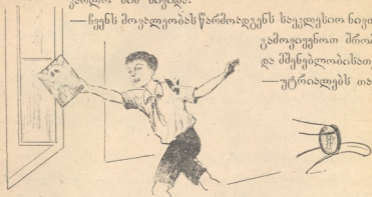 —ჩვენს მოვალეობას წარმოადგენს საეკლესიო ნივთ
გამოვიყენოთ შრომ
და მშენებლობისათ
—უტრიალებს თა